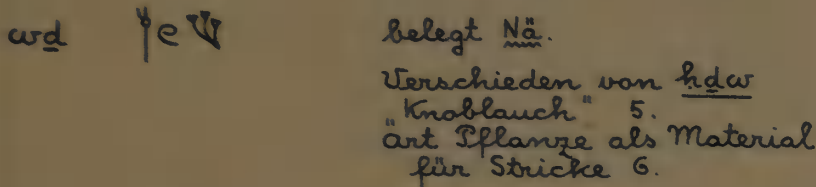 wḏ belegt Nä.
Verschieden von hdw
"Knoblauch" 5.
Art Pflanze als Material
für Stricke 6.